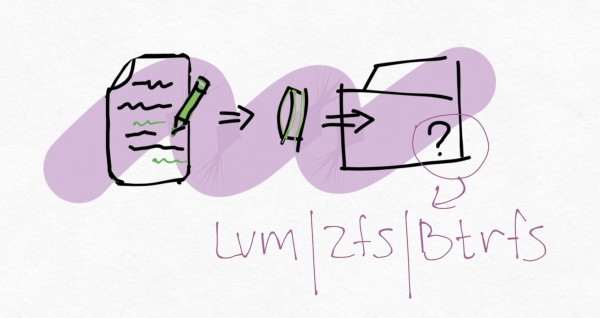 ?
Lvm|Zfs|Btrfs